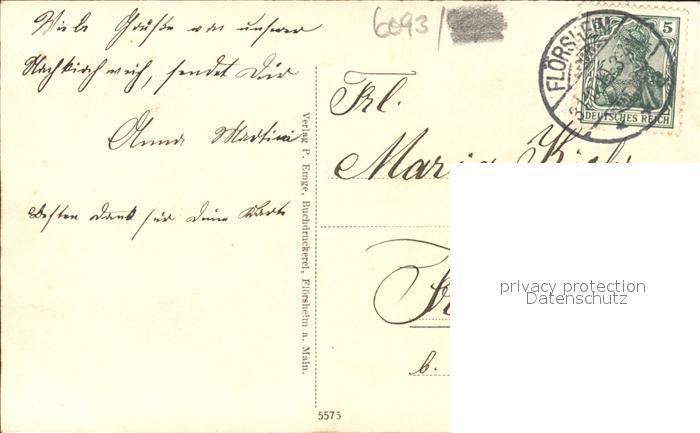 Viele Grüße von unserer
Nachkirchweih, sendet Dir
Anna Martini
Besten Dank für Deine Karte
6093/
Frl.
Maria
b.
FLÖRSHEIM
5
DEUTSCHES REICH
Verlag P. Emge, Buchdruckerei, Flörsheim a. Main.
5575
privacy protection
Datenschutz